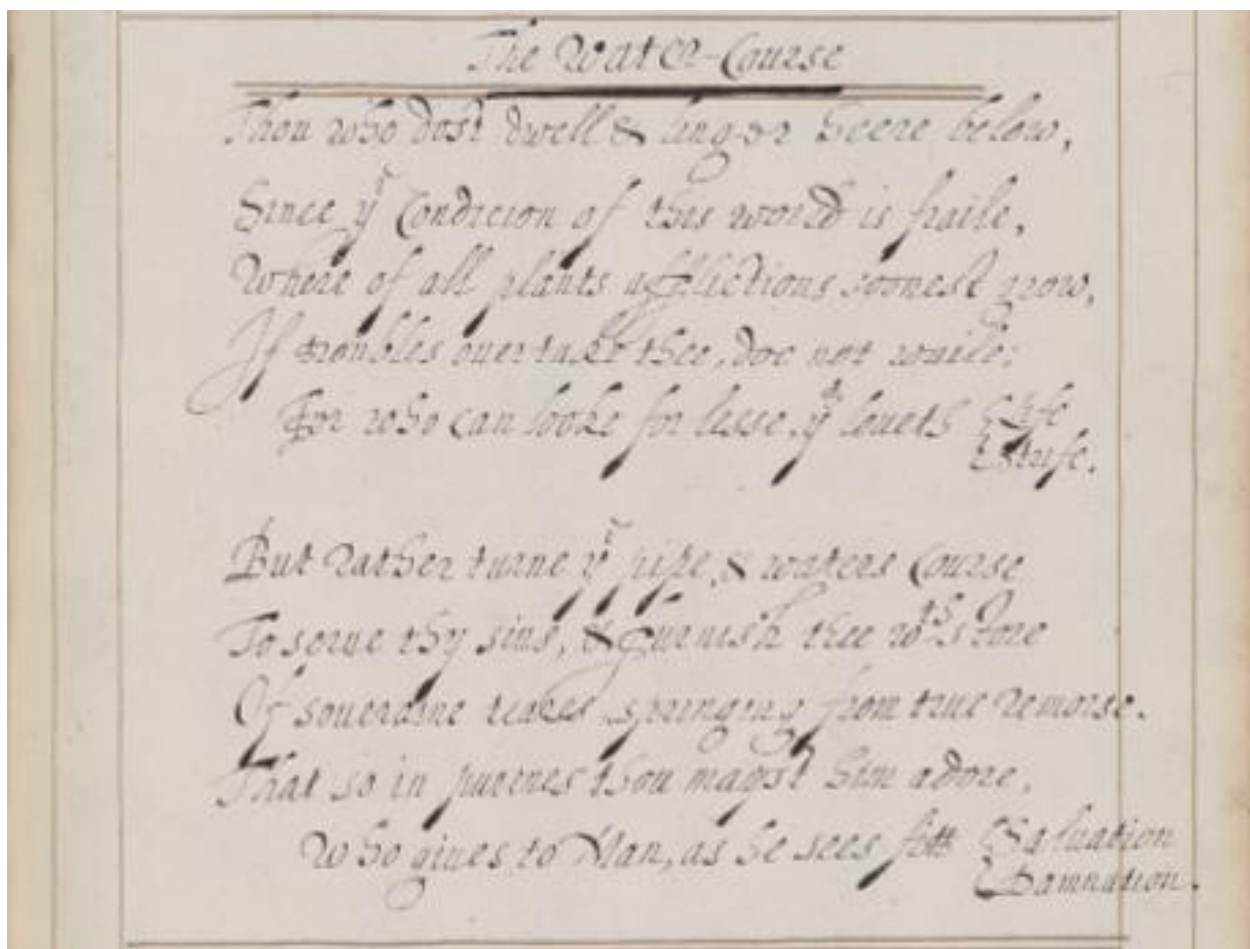 The Water-Course
Thou who dost dwell & linger heere below,
Since yͤ Condicion of this world is fraile,
Where of all plants afflictions soonest grow,
If troubles ouertake thee, doe not waile:
For who can looke for lesse, yͭ loueth { Life
{ Strife.
But rather turne yͤ pipe, & waters Course
To serue thy sins, & furnish thee wᵗʰ store
Of soueraine teares, springing from true remorse.
That so in purenes thou mayst him adore,
Who giues to Man, as he sees fitt { Saluation
{ Damnation.